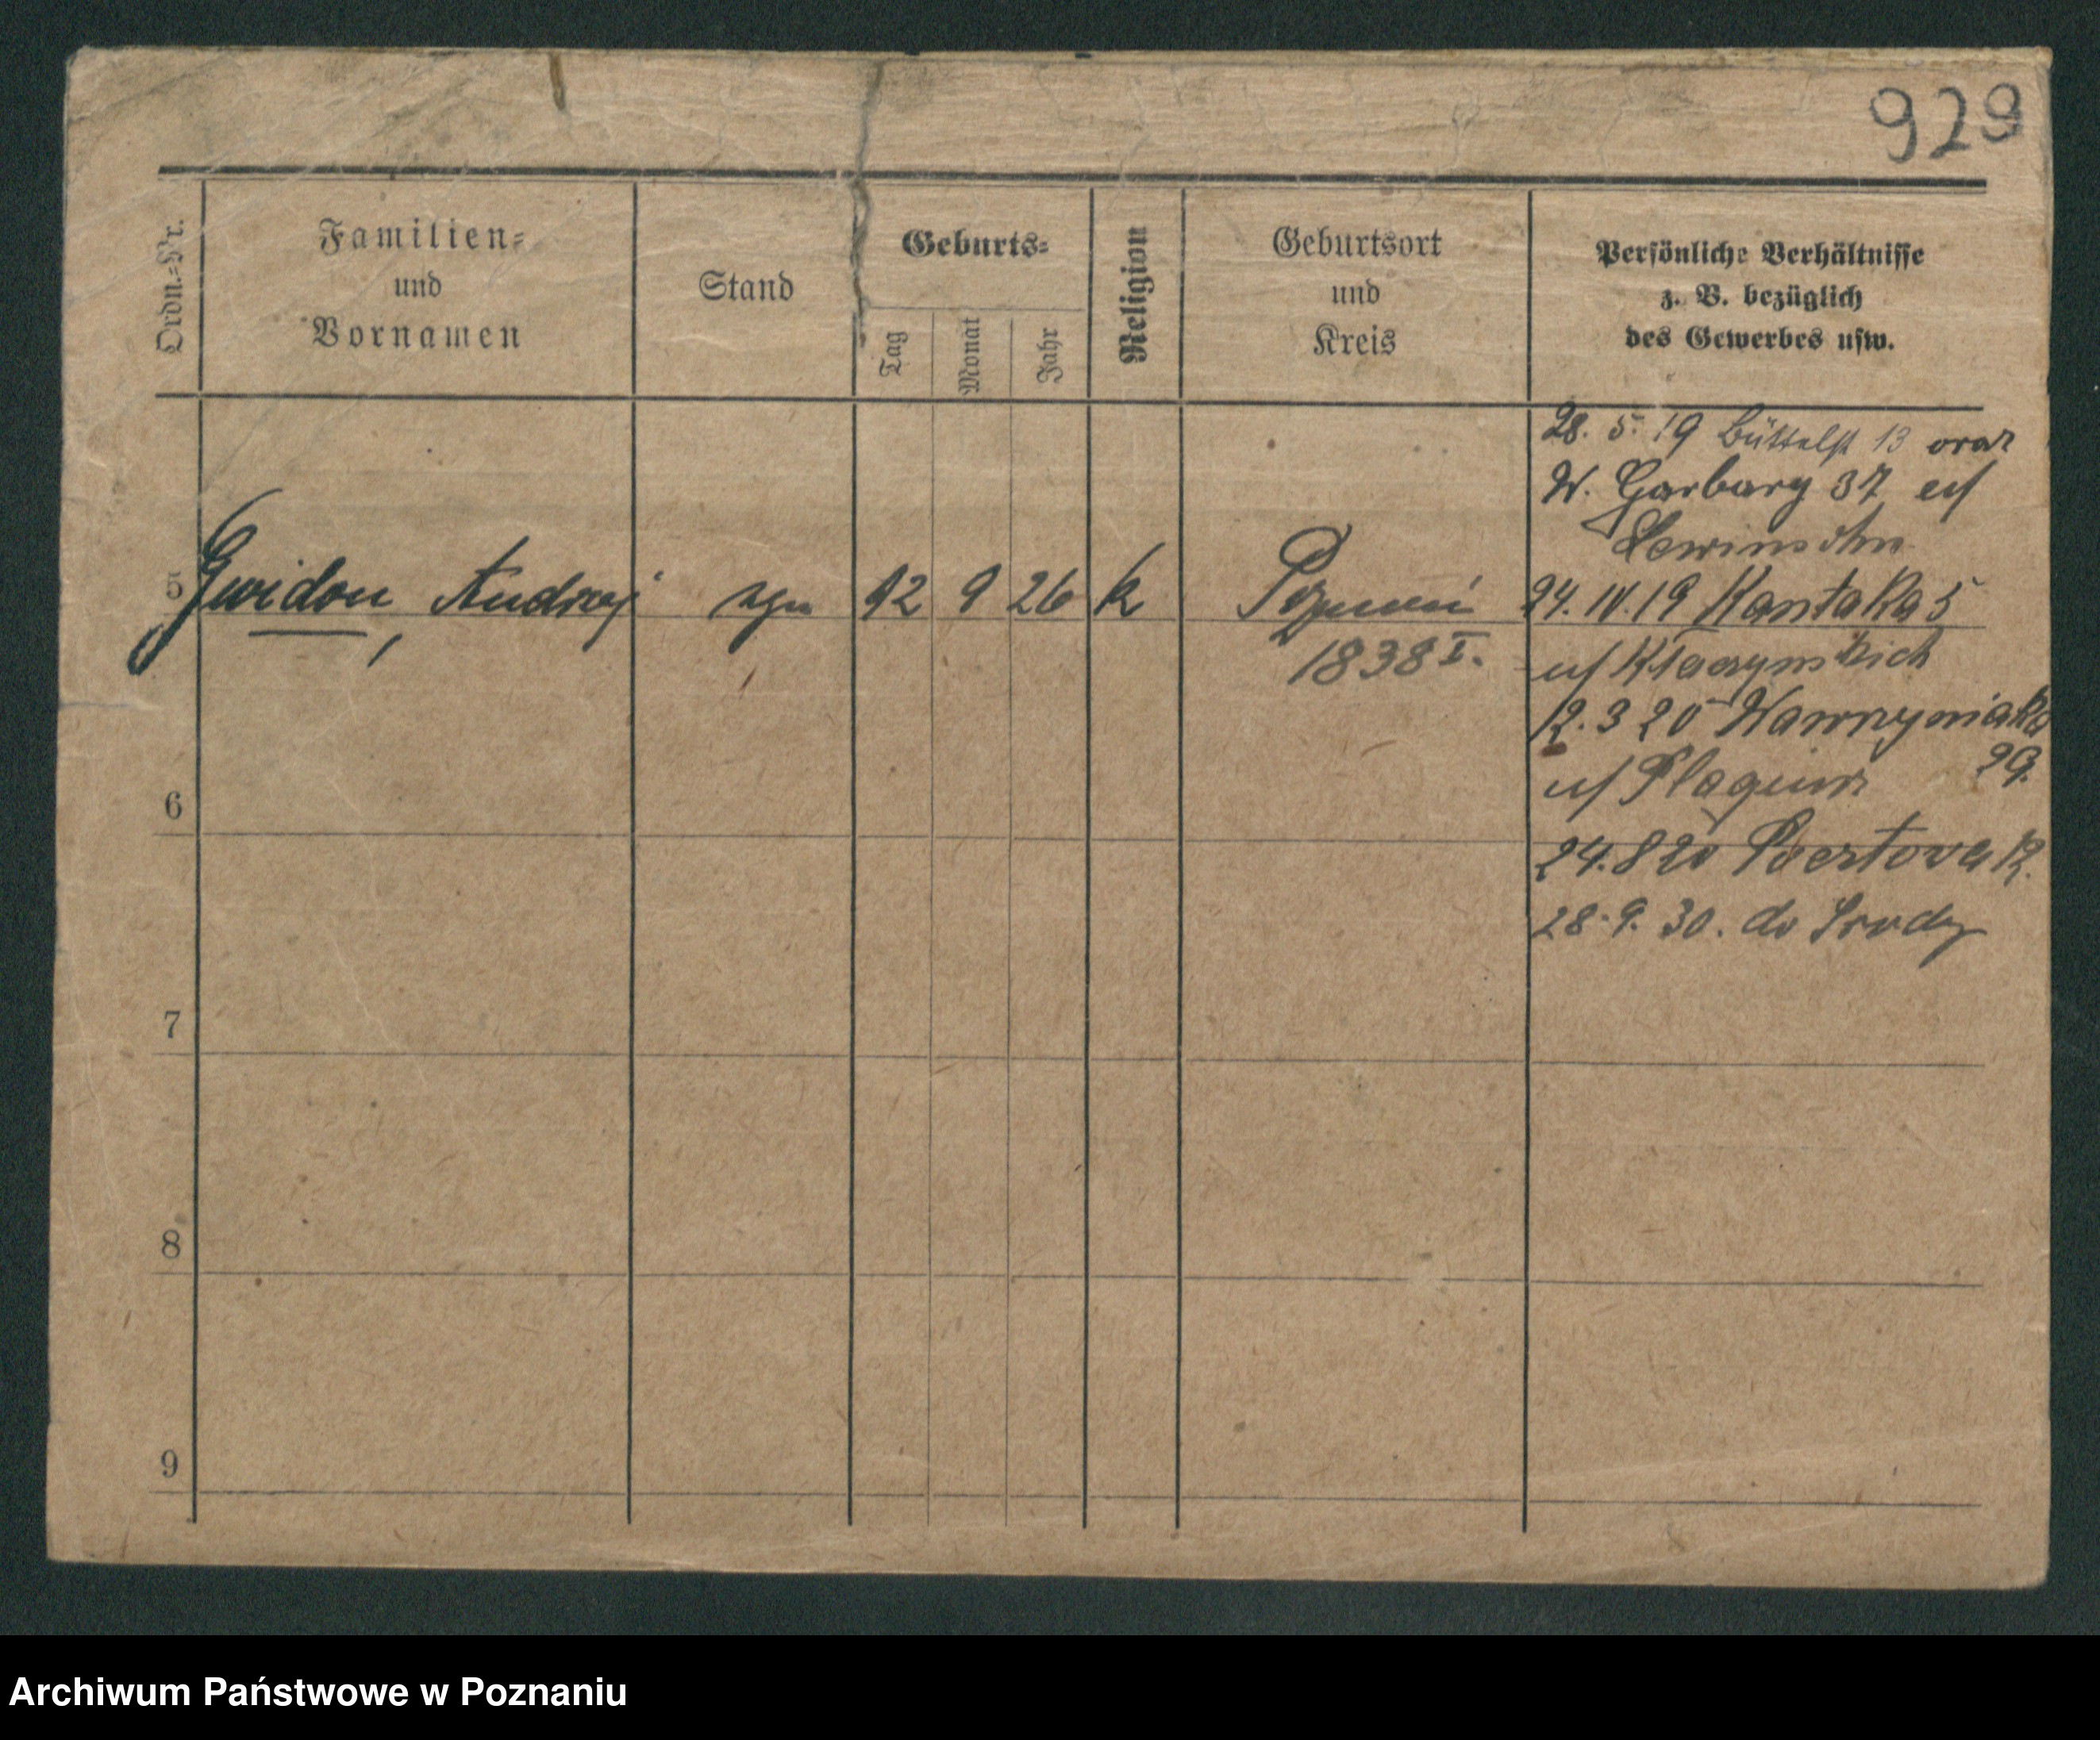 929
Ordn.-Nr.
Familien-
und
Vornamen
Stand
Geburts-
Tag
Monat
Jahr
Religion
Geburtsort
und
Kreis
Persönliche Verhältnisse
z. B. bezüglich
des Gewerbes usw.
28. 5. 19 Büttelst 13 oraz
W. Garbary 37 u/
Lewinsohn
5 Gwidon, Andrzej syn 12 9 26 k Poznań
1838 I.
24. IV. 19 Kantaka 5
u/
12. 3 20 Wawrzyniaka
29.
u/
24. 8 20 Pocztowa 12.
28. 9. 30. do Środy
6
7
8
9
Archiwum Państwowe w Poznaniu